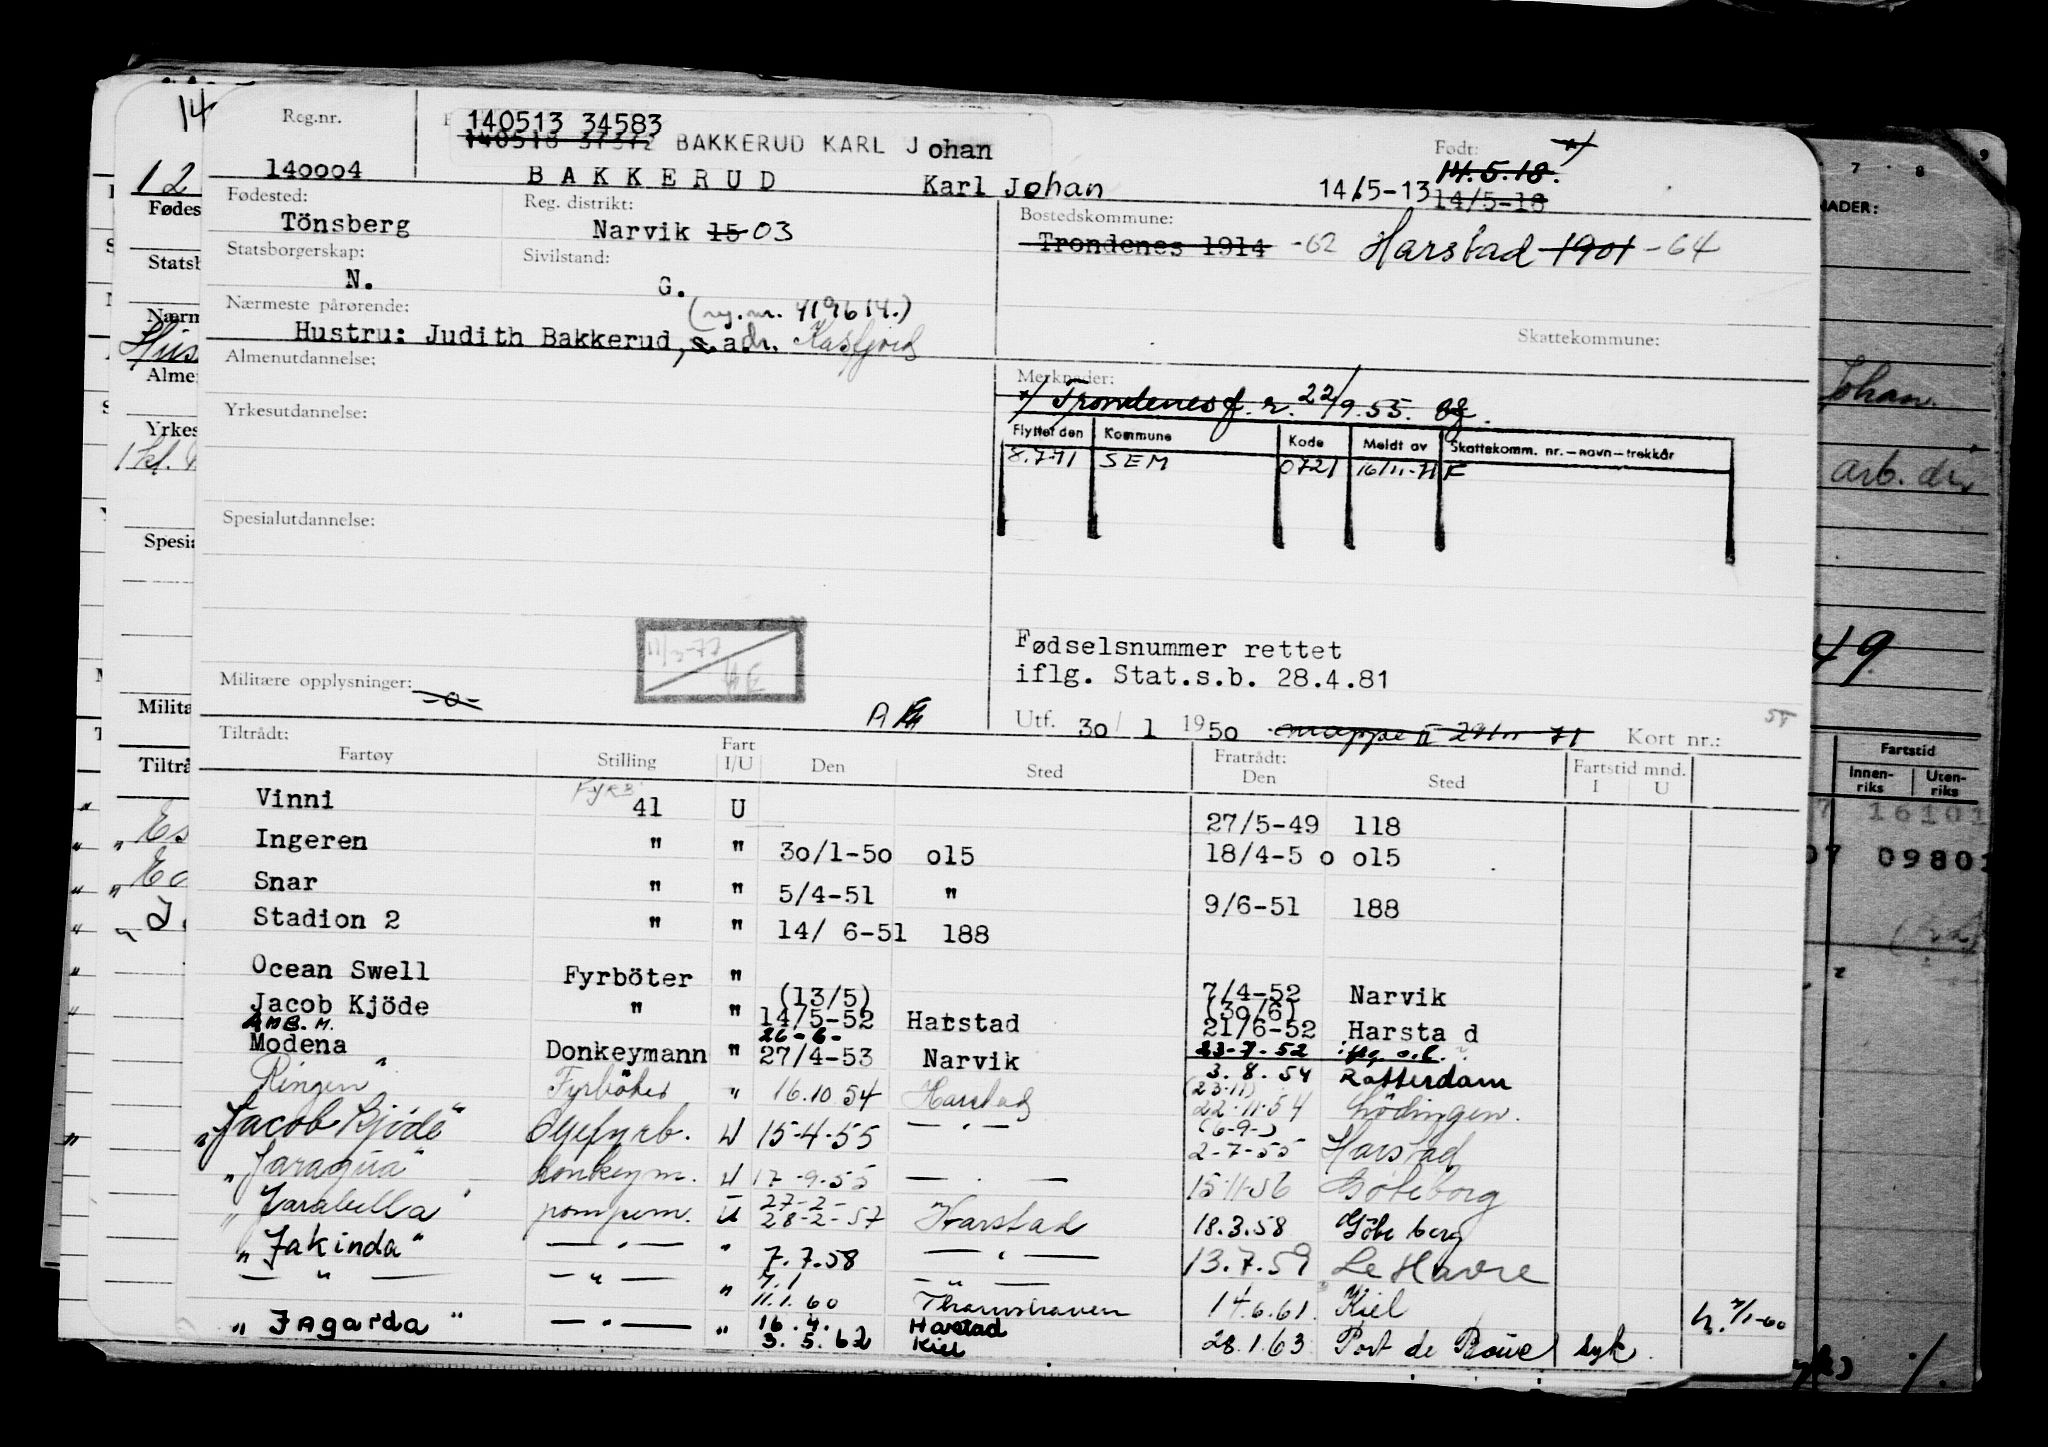 Reg.nr.
140513 34583
140518 37372 BAKKERUD KARL Johan
Født:
140004 BAKKERUD Karl Johan 14/5-13 14.5.18.
14/5-18
Fødested: Tönsberg
Reg. distrikt: Narvik 15 03
Bostedskommune:
Trondenes 1914 -62 Harstad 1901 -64
Statsborgerskap: N.
Sivilstand: G.
Nærmeste pårørende: (reg.nr. 419614.)
Hustru: Judith Bakkerud, s.adr. Kasfjord
Skattekommune:
Almenutdannelse:
Merknader:
x/ Trondenes f. r. 22/9.55.
Yrkesutdannelse:
Flyttet den Kommune Kode Meldt av Skattekomm. nr.—navn—trekkår
8.7.71 SEM 0721 16/11-71 F
Spesialutdannelse:
Fødselsnummer rettet
iflg. Stat.s.b. 28.4.81
Militære opplysninger: -o-
Utf. 30/ 1 1950 mappe II 29/11 71 Kort nr.:
Tiltrådt:
Fartøy Stilling Fart I/U Den Sted Fratrådt: Den Sted Fartstid mnd. I U
Vinni 41 U 27/5-49 118
Ingeren " " 30/1-50 015 18/4-5 0 015
Snar " " 5/4-51 " 9/6-51 188
Stadion 2 " " 14/ 6-51 188
Ocean Swell Fyrböter " 7/4-52 Narvik
(13/5) (30/6)
Jacob Kjöde " " 14/5-52 Harstad 21/6-52 Harsta d
26-6- 23-7-52
Modena Donkeymann " 27/4-53 Narvik 3.8.54 Rotterdam
Ringen" Fyrböter " 16.10 54 Harstad (23.11) 22.11.54 Lödingen.
"Jacob Kjöde" Oljefyrb. U 15-4-55 — " — (6-9-) 2-7-55 Harstad
"Jaraqua" donkeym. U 17-9-55 — " — 15-11-56 Göteborg
"Jarabella" pompem. U 27-2- 28-2-57 Harstad 18.3.58 Göteberg
"Jakinda" — " — " 7.7.58 — " — 13.7.59 Le Havre
— " — — " — " 7.1 — " —
11.1.60 Thamshavn 14.6.61 Kiel
"Jagarda" — " — " 16.4. Harstad
3.5.62 Kiel 28.1.63 Port de Bouc syk.
Johan.
arb. dr.
49
Fartstid
Innenriks Utenriks
16101
09801